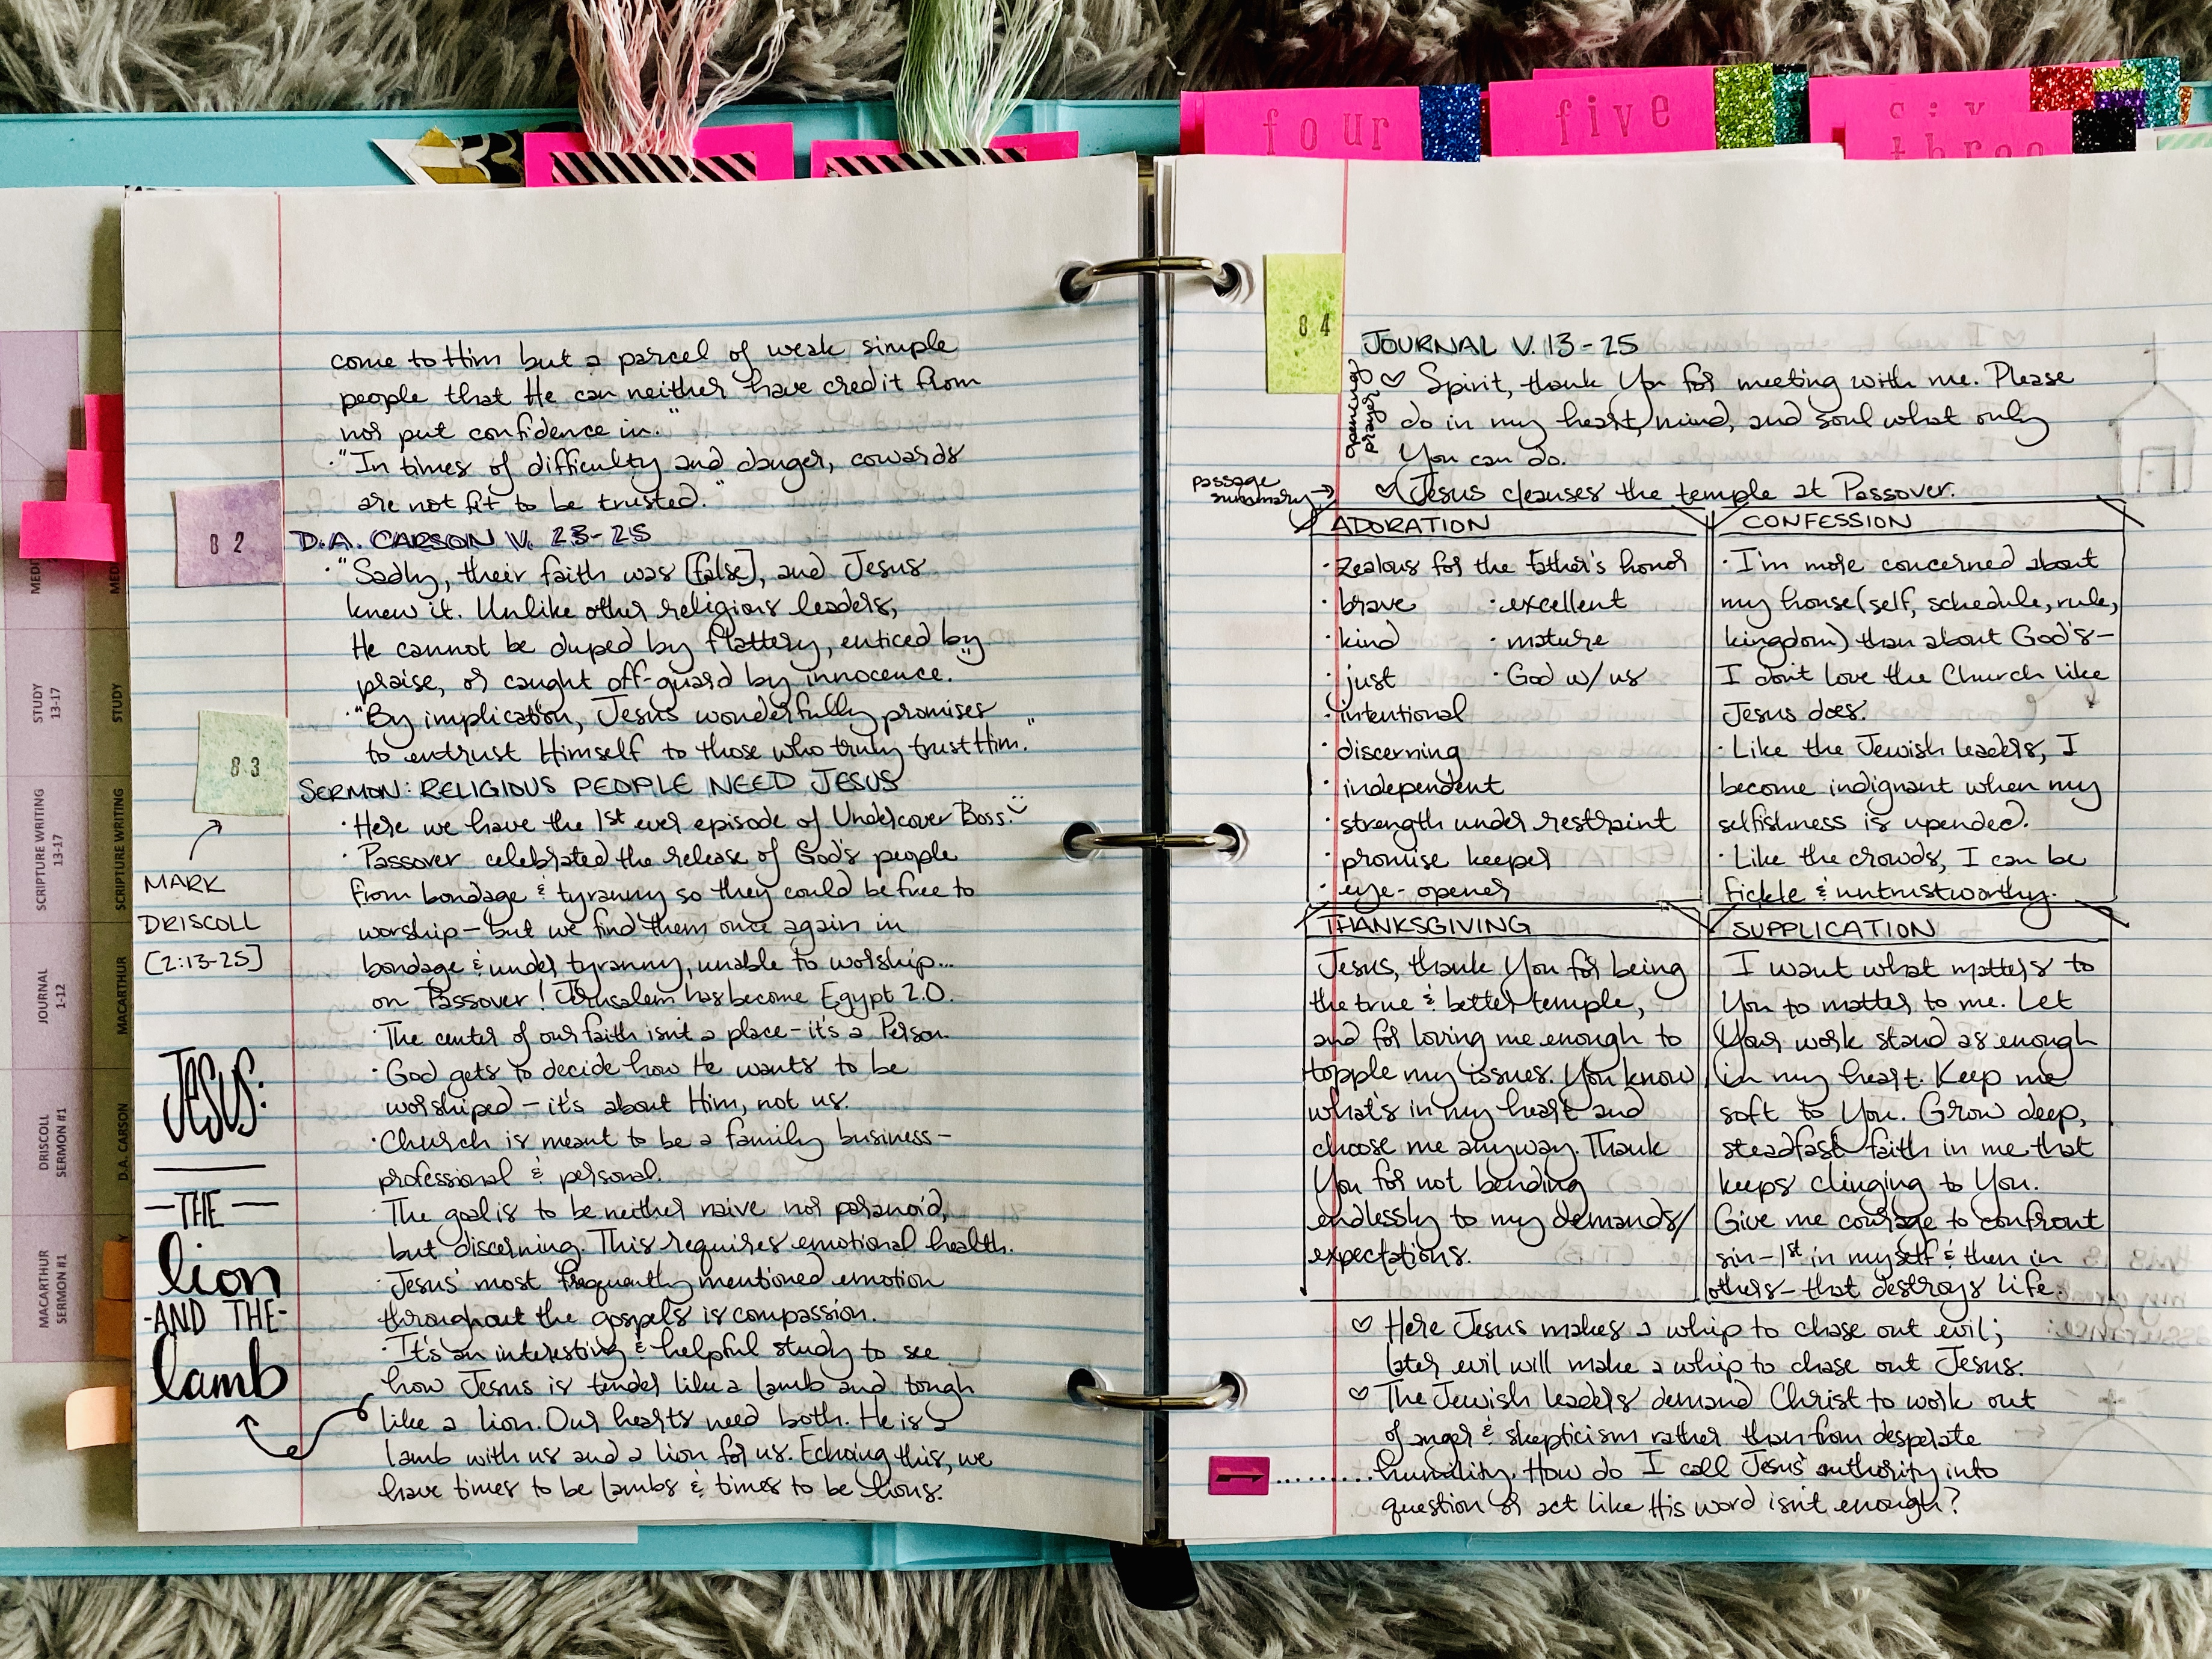 four
five
six
three
come to Him but a parcel of weak simple
people that He can neither have credit from
nor put confidence in."
·"In times of difficulty and danger, cowards
are not fit to be trusted."
82
D.A. CARSON V. 23-25
·"Sadly, their faith was [false], and Jesus
knew it. Unlike other religious leaders,
He cannot be duped by flattery, enticed by
praise, or caught off-guard by innocence."
·"By implication, Jesus wonderfully promises
to entrust Himself to those who truly trust Him."
83
SERMON: RELIGIOUS PEOPLE NEED JESUS
MARK
DRISCOLL
[2:13-25]
·Here we have the 1st ever episode of Undercover Boss.
·Passover celebrated the release of God's people
from bondage & tyranny so they could be free to
worship - but we find them once again in
bondage & under tyranny, unable to worship...
on Passover! Jerusalem has become Egypt 2.0.
·The center of our faith isn't a place - it's a Person.
·God gets to decide how He wants to be
worshiped - it's about Him, not us.
·Church is meant to be a family business -
professional & personal.
·The goal is to be neither naive nor paranoid,
but discerning. This requires emotional health.
·Jesus' most frequently mentioned emotion
throughout the gospels is compassion.
·It's an interesting & helpful study to see
how Jesus is tender like a lamb and tough
like a lion. Our hearts need both. He is a
lamb with us and a lion for us. Echoing this, we
have times to be lambs & times to be lions.
JESUS:
-THE-
lion
-AND THE-
lamb
STUDY
13-17
SCRIPTURE WRITING
13-17
JOURNAL
1-12
DRISCOLL
SERMON #1
MACARTHUR
SERMON #1
STUDY
SCRIPTURE WRITING
MACARTHUR
D.A. CARSON
84
JOURNAL V. 13-25
opening prayer
♡ Spirit, thank You for meeting with me. Please
do in my heart, mind, and soul what only
You can do.
passage
summary →
♡ Jesus cleanses the temple at Passover.
ADORATION
·zealous for the Father's honor
·brave ·excellent
·kind ·mature
·just ·God w/ us
·intentional
·discerning
·independent
·strength under restraint
·promise keeper
·eye-opener
CONFESSION
·I'm more concerned about
my house (self, schedule, rule,
kingdom) than about God's -
I don't love the Church like
Jesus does.
·Like the Jewish leaders, I
become indignant when my
selfishness is upended.
·Like the crowds, I can be
fickle & untrustworthy.
THANKSGIVING
Jesus, thank You for being
the true & better temple,
and for loving me enough to
topple my issues. You know
what's in my heart and
choose me anyway. Thank
You for not bending
endlessly to my demands/
expectations.
SUPPLICATION
I want what matters to
You to matter to me. Let
Your work stand as enough
in my heart. Keep me
soft to You. Grow deep,
steadfast faith in me that
keeps clinging to You.
Give me courage to confront
sin - 1st in myself & then in
others - that destroys life.
♡ Here Jesus makes a whip to chase out evil;
later evil will make a whip to chase out Jesus.
♡ The Jewish leaders demand Christ to work out
of anger & skepticism rather than from desperate
humility. How do I call Jesus' authority into
question or act like His word isn't enough?